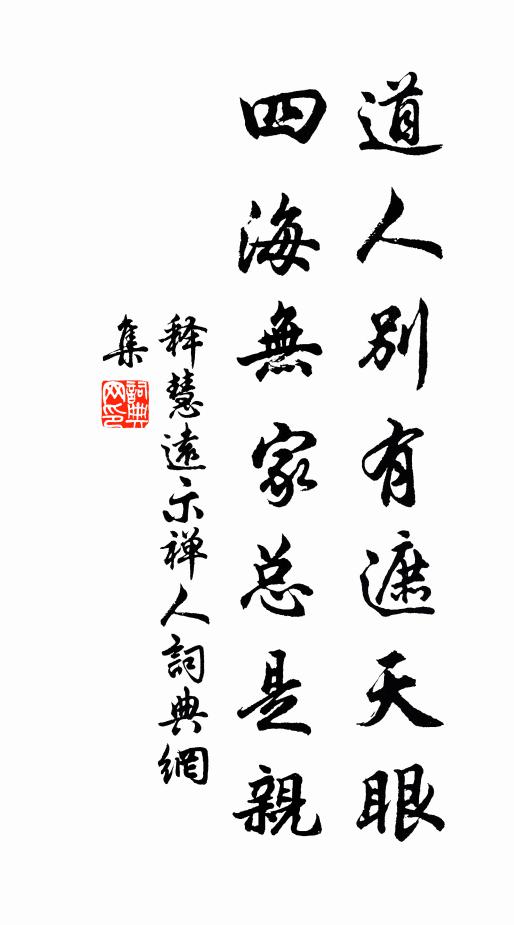 道人别有遮天眼
四海無家总是親
释慧遠示禅人詞典網
集
詞典
网印